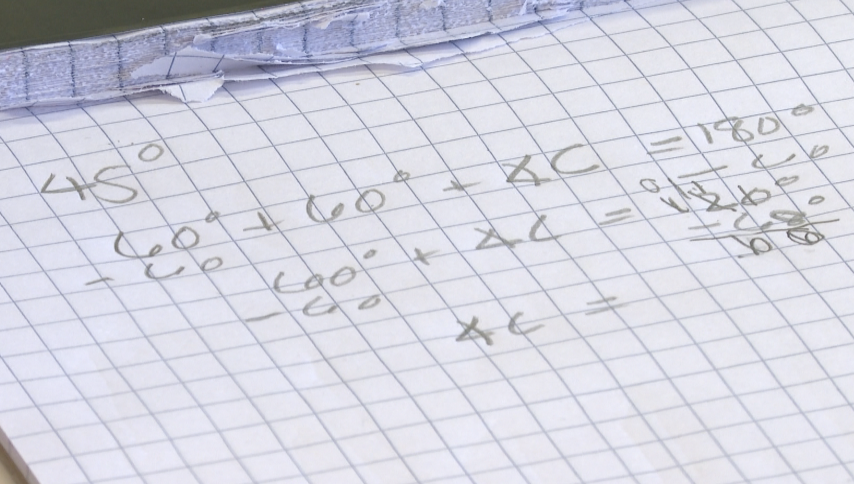 45°
60° + 60° + ∡C = 180°
- 60 - 60°
60° + ∡C = 120°
- 60 - 60°
∡C = 60